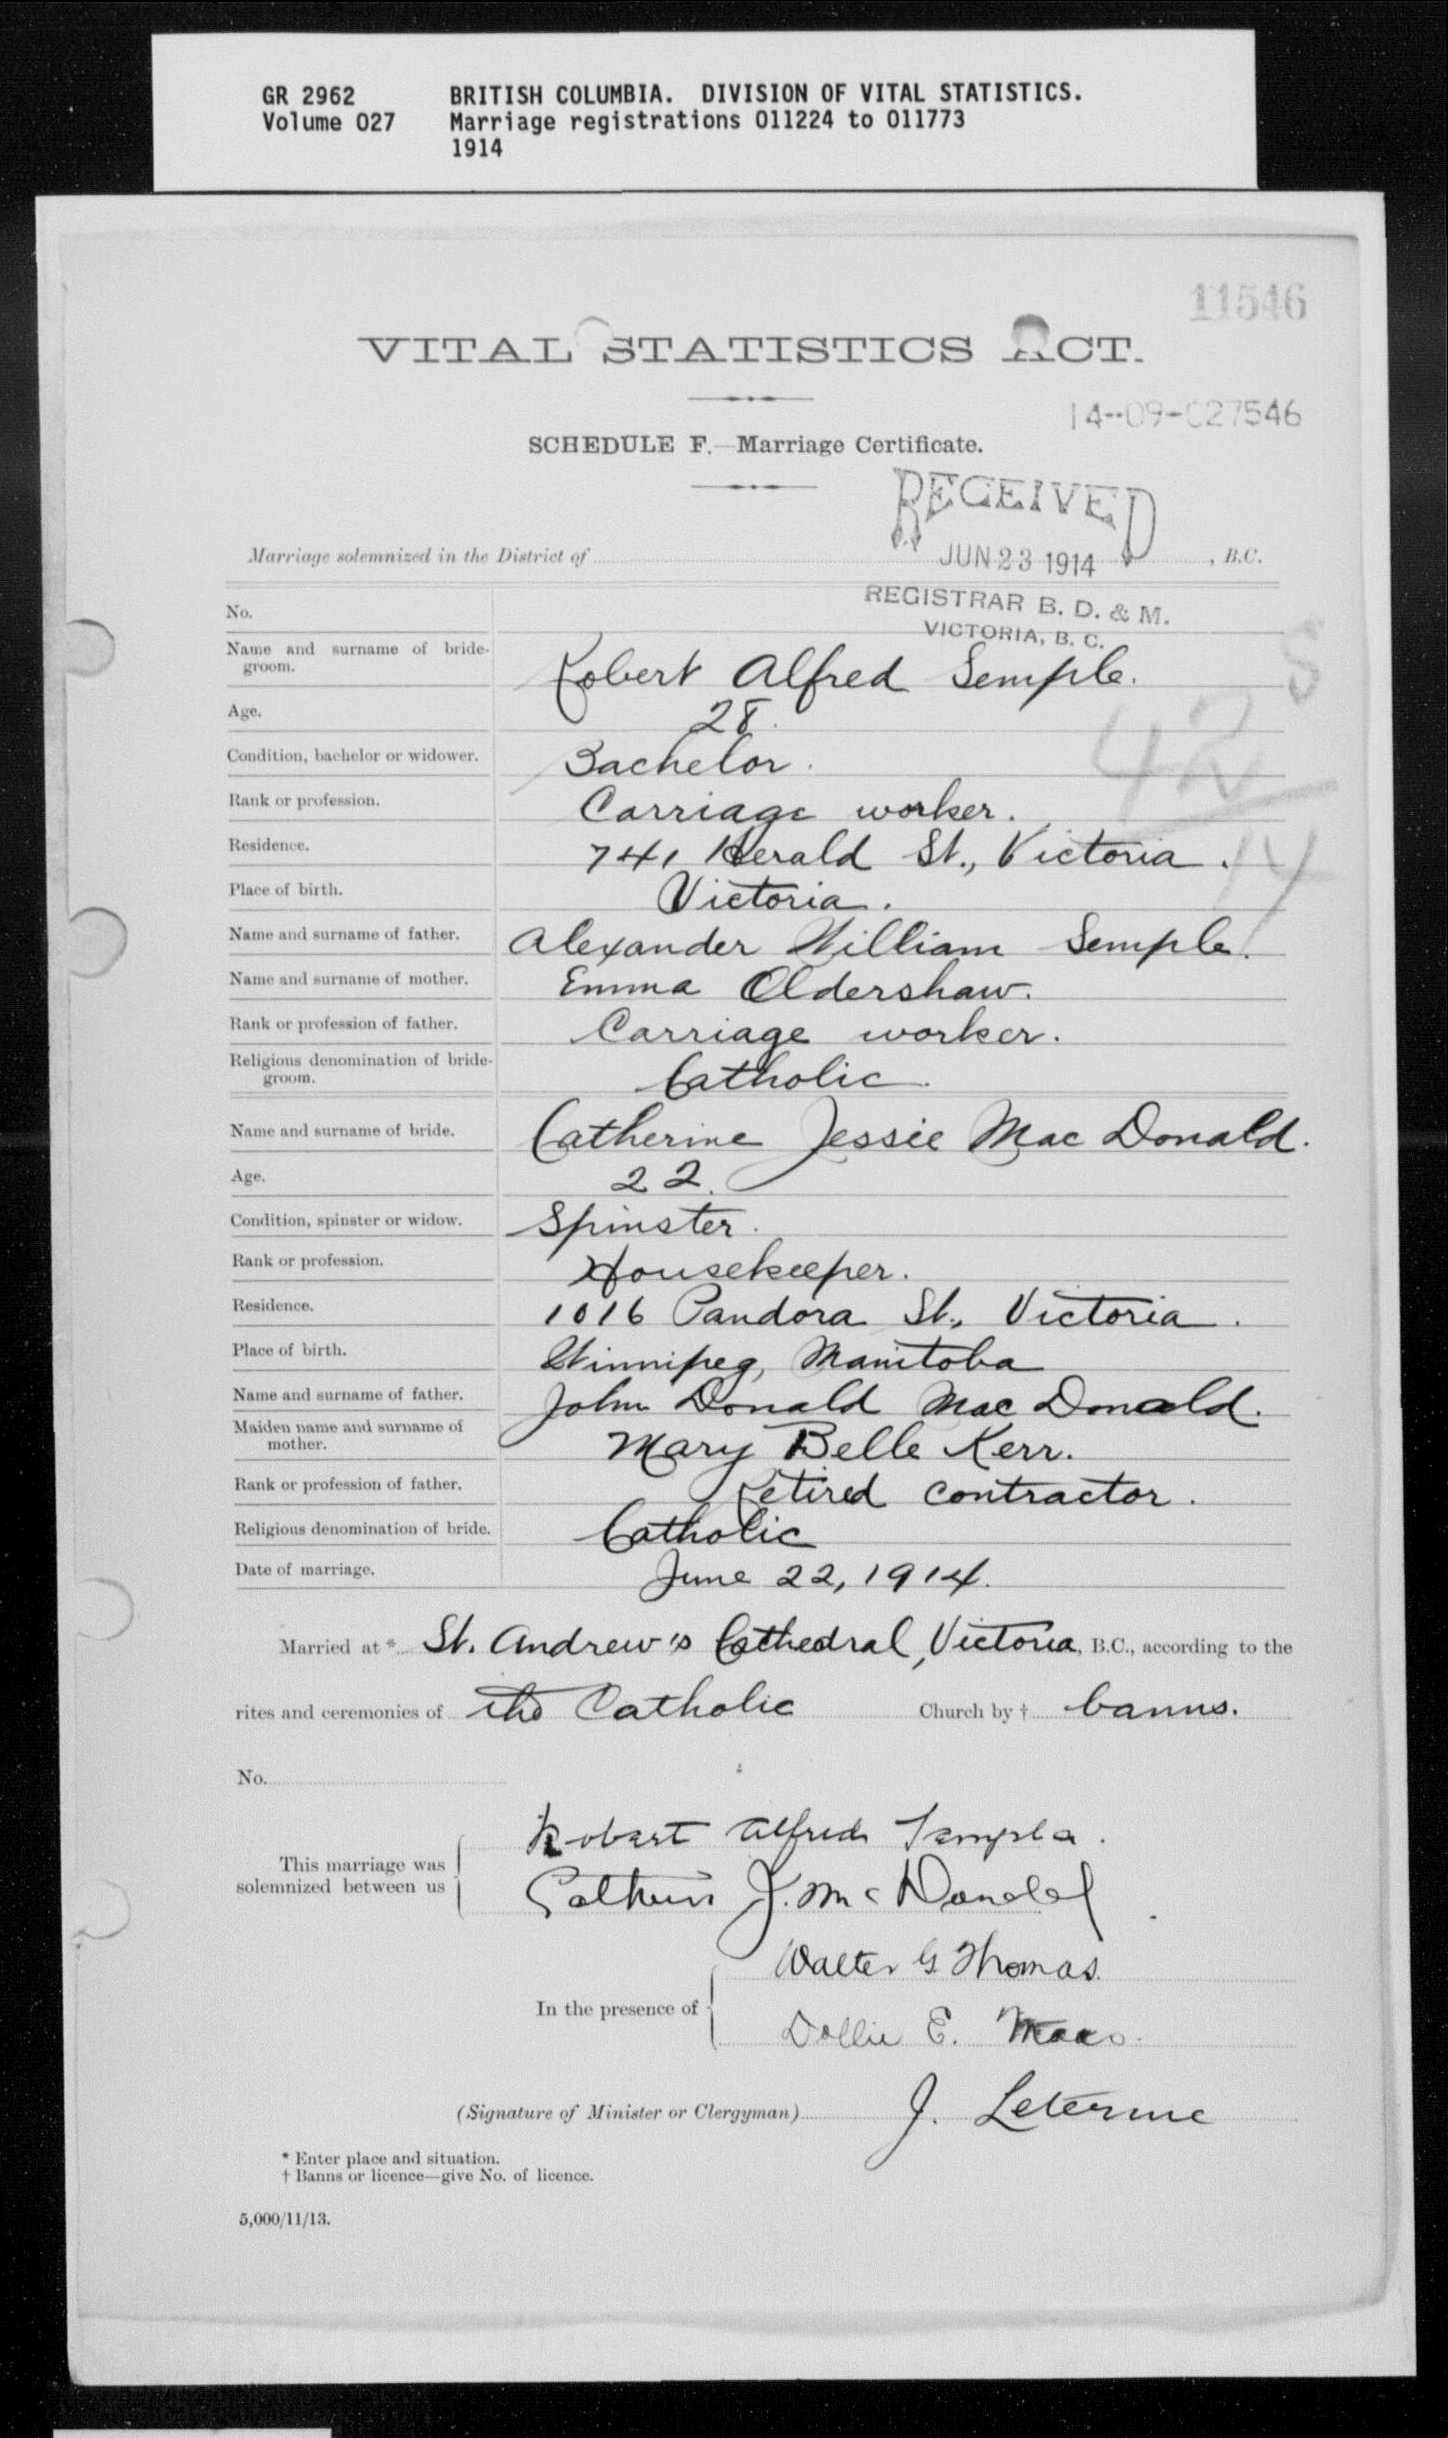 GR 2962 BRITISH COLUMBIA. DIVISION OF VITAL STATISTICS.
Volume 027 Marriage registrations 011224 to 011773
1914
11546
VITAL STATISTICS ACT.
14-09-027546
SCHEDULE F.—Marriage Certificate.
RECEIVED
Marriage solemnized in the District of , B.C.
JUN 23 1914
REGISTRAR B. D. & M.
VICTORIA, B. C.
No.
Name and surname of bride-groom. Robert Alfred Semple.
S
Age. 28.
42
Condition, bachelor or widower. Bachelor.
Rank or profession. Carriage worker.
Residence. 741 Herald St., Victoria.
14
Place of birth. Victoria.
Name and surname of father. Alexander William Semple.
Name and surname of mother. Emma Oldershaw.
Rank or profession of father. Carriage worker.
Religious denomination of bride-groom. Catholic.
Name and surname of bride. Catherine Jessie Mac Donald.
Age. 22.
Condition, spinster or widow. Spinster.
Rank or profession. Housekeeper.
Residence. 1016 Pandora St., Victoria.
Place of birth. Winnipeg, Manitoba
Name and surname of father. John Donald Mac Donald.
Maiden name and surname of mother. Mary Belle Kerr.
Rank or profession of father. Retired contractor.
Religious denomination of bride. Catholic
Date of marriage. June 22, 1914.
Married at * St. Andrew's Cathedral, Victoria, B.C., according to the
rites and ceremonies of the Catholic Church by † banns.
No.
Robert Alfred Semple.
This marriage was
solemnized between us
J. McDonald
Walter G Thomas.
In the presence of
Dollie E.
(Signature of Minister or Clergyman) J. Leterme
* Enter place and situation.
† Banns or licence—give No. of licence.
5,000/11/13.